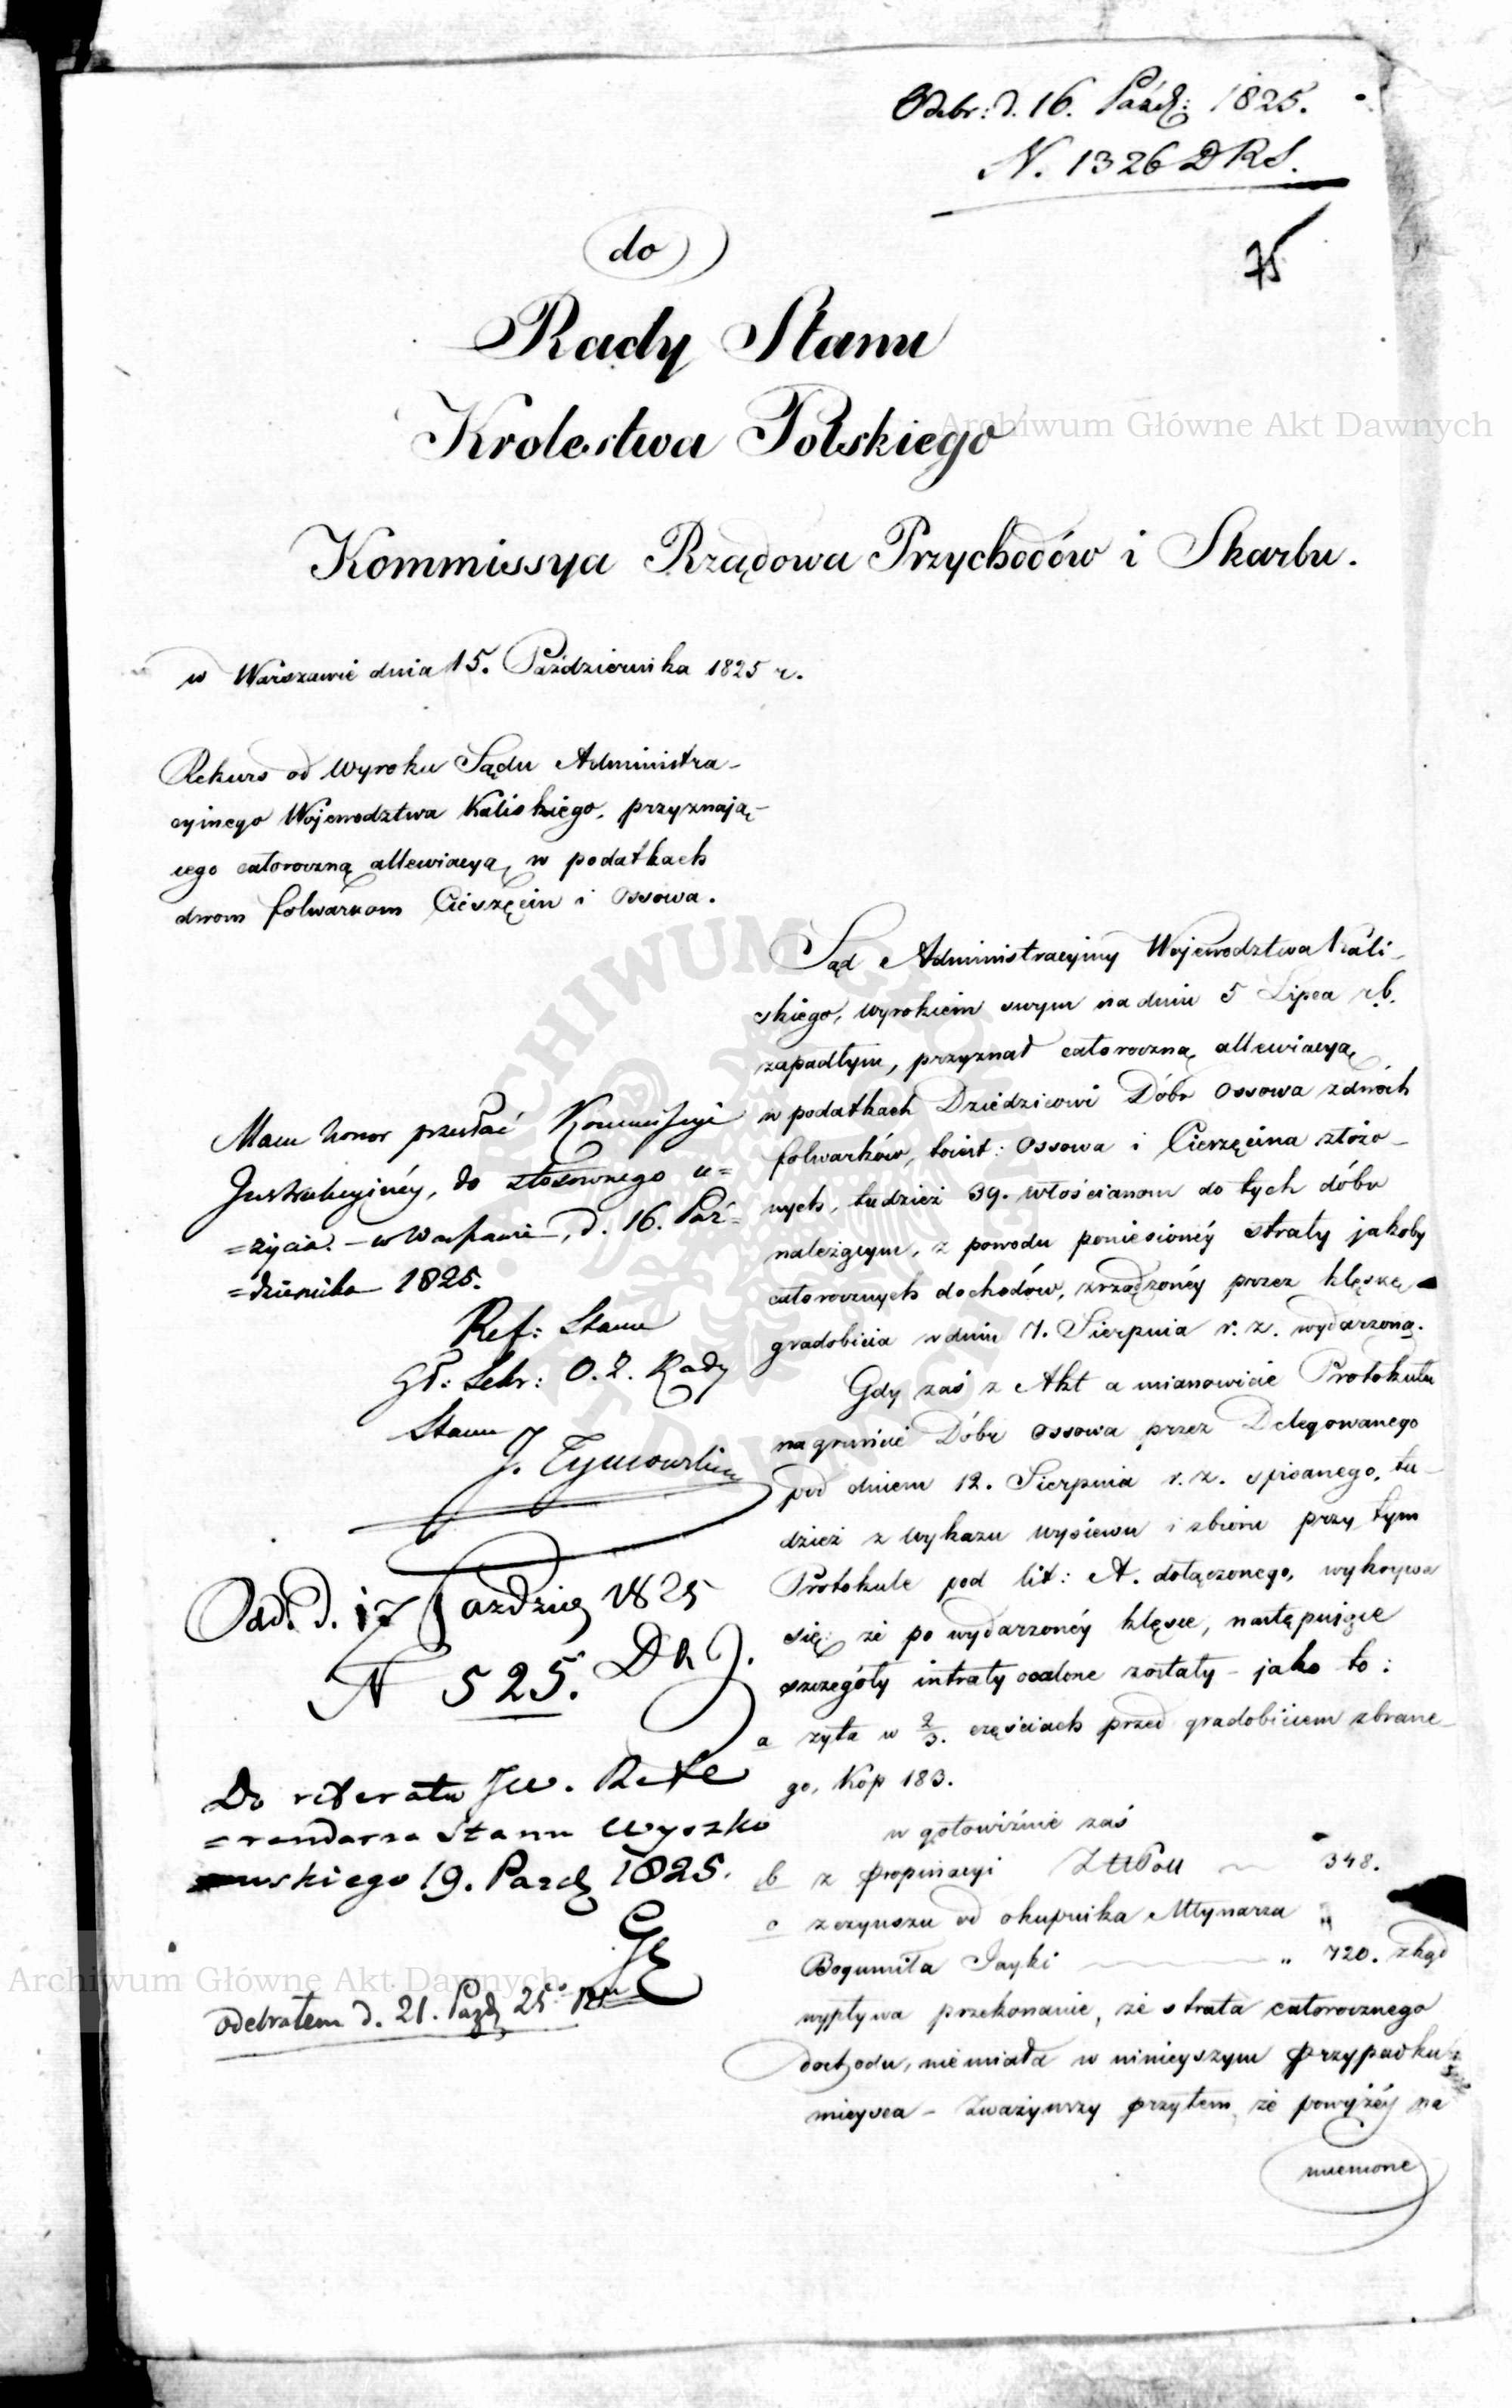 Odebr: d. 16. Paźdz: 1825.
N. 1326 DRS.
75
do
Rady Stanu
Krolestwa Polskiego
Archiwum Główne Akt Dawnych
Kommissya Rządowa Przychodów i Skarbu.
w Warszawie dnia 15. Października 1825 r.
Rekurs od Wyroku Sądu Administra-
cyinego Województwa Kaliskiego, przyznają-
cego całoroczną allewiacyą w podatkach
dwom folwarkom Cieszęcin i Ossowa.
Mam honor przesłać Kommissyi
Instrukcyinéy, do stosownego u=
=życia. - w Warszawie, d. 16. Paź=
=dziernika 1825.
Ref: Stanu
Gł: Sekr: O. Z. Rady
Stanu
J. Tymowski
Odd. d. 17 Paździer 1825
N 525. D k J.
Do referatu JW. Refe
=rendarza Stanu Wyszko
wskiego 19. Pazdz 1825.
odebrałem d. 21. Pazdz 25
Archiwum Główne Akt Dawnych
Sąd Administracyiny Województwa Kali-
skiego, wyrokiem swym na dniu 5 Lipca r.b.
zapadłym, przyznał całoroczną allewiacyą
w podatkach Dziedzicowi Dóbr Ossowa z dwóch
folwarków, to iest: Ossowa i Cieszęcina złożo-
nych, tudzież 39. włościanom do tych dóbr
należącym, z powodu poniesionéy straty jakoby
całorocznych dochodów, zrządzonéy przez klęskę
gradobicia w dniu 7. Sierpnia r. z. wydarzoną.
Gdy zaś z Akt a mianowicie Protokułu
na gruncie Dóbr Ossowa przez Delegowanego
pod dniem 12. Sierpnia r. z. spisanego, tu-
dzież z wykazu wysiewu i zbioru przy tym
Protokule pod lit: A. dołączonego, wykrywa
się: że po wydarzonéy klęsce, następujące
szczegóły intraty ocalone zostały - jako to:
a żyta w 2/3. częściach przed gradobiciem zbrane-
go, Kop 183.
w gotowiźnie zaś
b z propinacyi Złł Pol 348.
c z czynszu od okupnika Młynarza
Bogumiła Jayki " 720. zkąd
wypływa przekonanie, że strata całorocznego
dochodu, nie miała w ninieyszym przypadku
mieysca - Zważywszy przytem, że powyżéy na
mienione